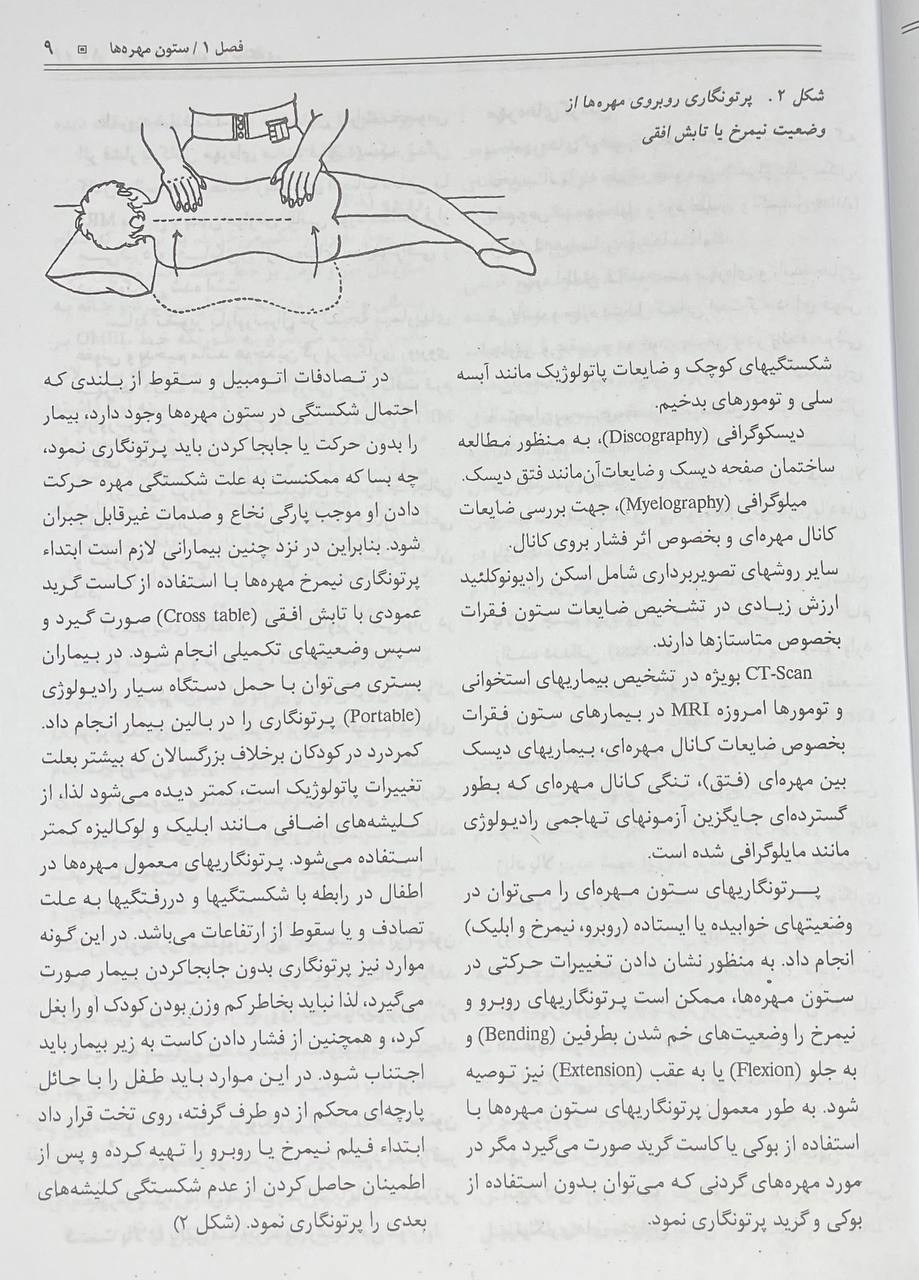 فصل ۱ / ستون مهره‌ها ▣ ۹
شکل ۲. پرتونگاری روبروی مهره‌ها از
وضعیت نیمرخ یا تابش افقی
شکستگیهای کوچک و ضایعات پاتولوژیک مانند آبسه
سلی و تومورهای بدخیم.
دیسکوگرافی (Discography)، به منظور مطالعه
ساختمان صفحه دیسک و ضایعات‌آن‌مانند فتق دیسک.
میلوگرافی (Myelography)، جهت بررسی ضایعات
کانال مهره‌ای و بخصوص اثر فشار بروی کانال.
سایر روشهای تصویربرداری شامل اسکن رادیونوکلئید
ارزش زیادی در تشخیص ضایعات ستون فقرات
بخصوص متاستازها دارند.
CT-Scan بویژه در تشخیص بیماریهای استخوانی
و تومورها امروزه MRI در بیمارهای ستون فقرات
بخصوص ضایعات کانال مهره‌ای، بیماریهای دیسک
بین مهره‌ای (فتق)، تنگی کانال مهره‌ای که بطور
گسترده‌ای جایگزین آزمونهای تهاجمی رادیولوژی
مانند مایلوگرافی شده است.
پرتونگاریهای ستون مهره‌ای را می‌توان در
وضعیتهای خوابیده یا ایستاده (روبرو، نیمرخ و ابلیک)
انجام داد. به منظور نشان دادن تغییرات حرکتی در
ستون مهره‌ها، ممکن است پرتونگاریهای روبرو و
نیمرخ را وضعیت‌های خم شدن بطرفین (Bending) و
به جلو (Flexion) یا به عقب (Extension) نیز توصیه
شود. به طور معمول پرتونگاریهای ستون مهره‌ها با
استفاده از بوکی یا کاست گرید صورت می‌گیرد مگر در
مورد مهره‌های گردنی که می‌توان بدون استفاده از
بوکی و گرید پرتونگاری نمود.
در تصادفات اتومبیل و سقوط از بلندی که
احتمال شکستگی در ستون مهره‌ها وجود دارد، بیمار
را بدون حرکت یا جابجا کردن باید پرتونگاری نمود،
چه بسا که ممکنست به علت شکستگی مهره حرکت
دادن او موجب پارگی نخاع و صدمات غیرقابل جبران
شود. بنابراین در نزد چنین بیمارانی لازم است ابتداء
پرتونگاری نیمرخ مهره‌ها با استفاده از کاست گرید
عمودی با تابش افقی (Cross table) صورت گیرد و
سپس وضعیتهای تکمیلی انجام شود. در بیماران
بستری می‌توان با حمل دستگاه سیار رادیولوژی
(Portable) پرتونگاری را در بالین بیمار انجام داد.
کمردرد در کودکان برخلاف بزرگسالان که بیشتر بعلت
تغییرات پاتولوژیک است، کمتر دیده می‌شود لذا، از
کلیشه‌های اضافی مانند ابلیک و لوکالیزه کمتر
استفاده می‌شود. پرتونگاریهای معمول مهره‌ها در
اطفال در رابطه با شکستگیها و دررفتگیها به علت
تصادف و یا سقوط از ارتفاعات می‌باشد. در این گونه
موارد نیز پرتونگاری بدون جابجاکردن بیمار صورت
می‌گیرد، لذا نباید بخاطر کم وزن بودن کودک او را بغل
کرد، و همچنین از فشار دادن کاست به زیر بیمار باید
اجتناب شود. در این موارد باید طفل را با حائل
پارچه‌ای محکم از دو طرف گرفته، روی تخت قرار داد
ابتداء فیلم نیمرخ یا روبرو را تهیه کرده و پس از
اطمینان حاصل کردن از عدم شکستگی کلیشه‌های
بعدی را پرتونگاری نمود. (شکل ۲)